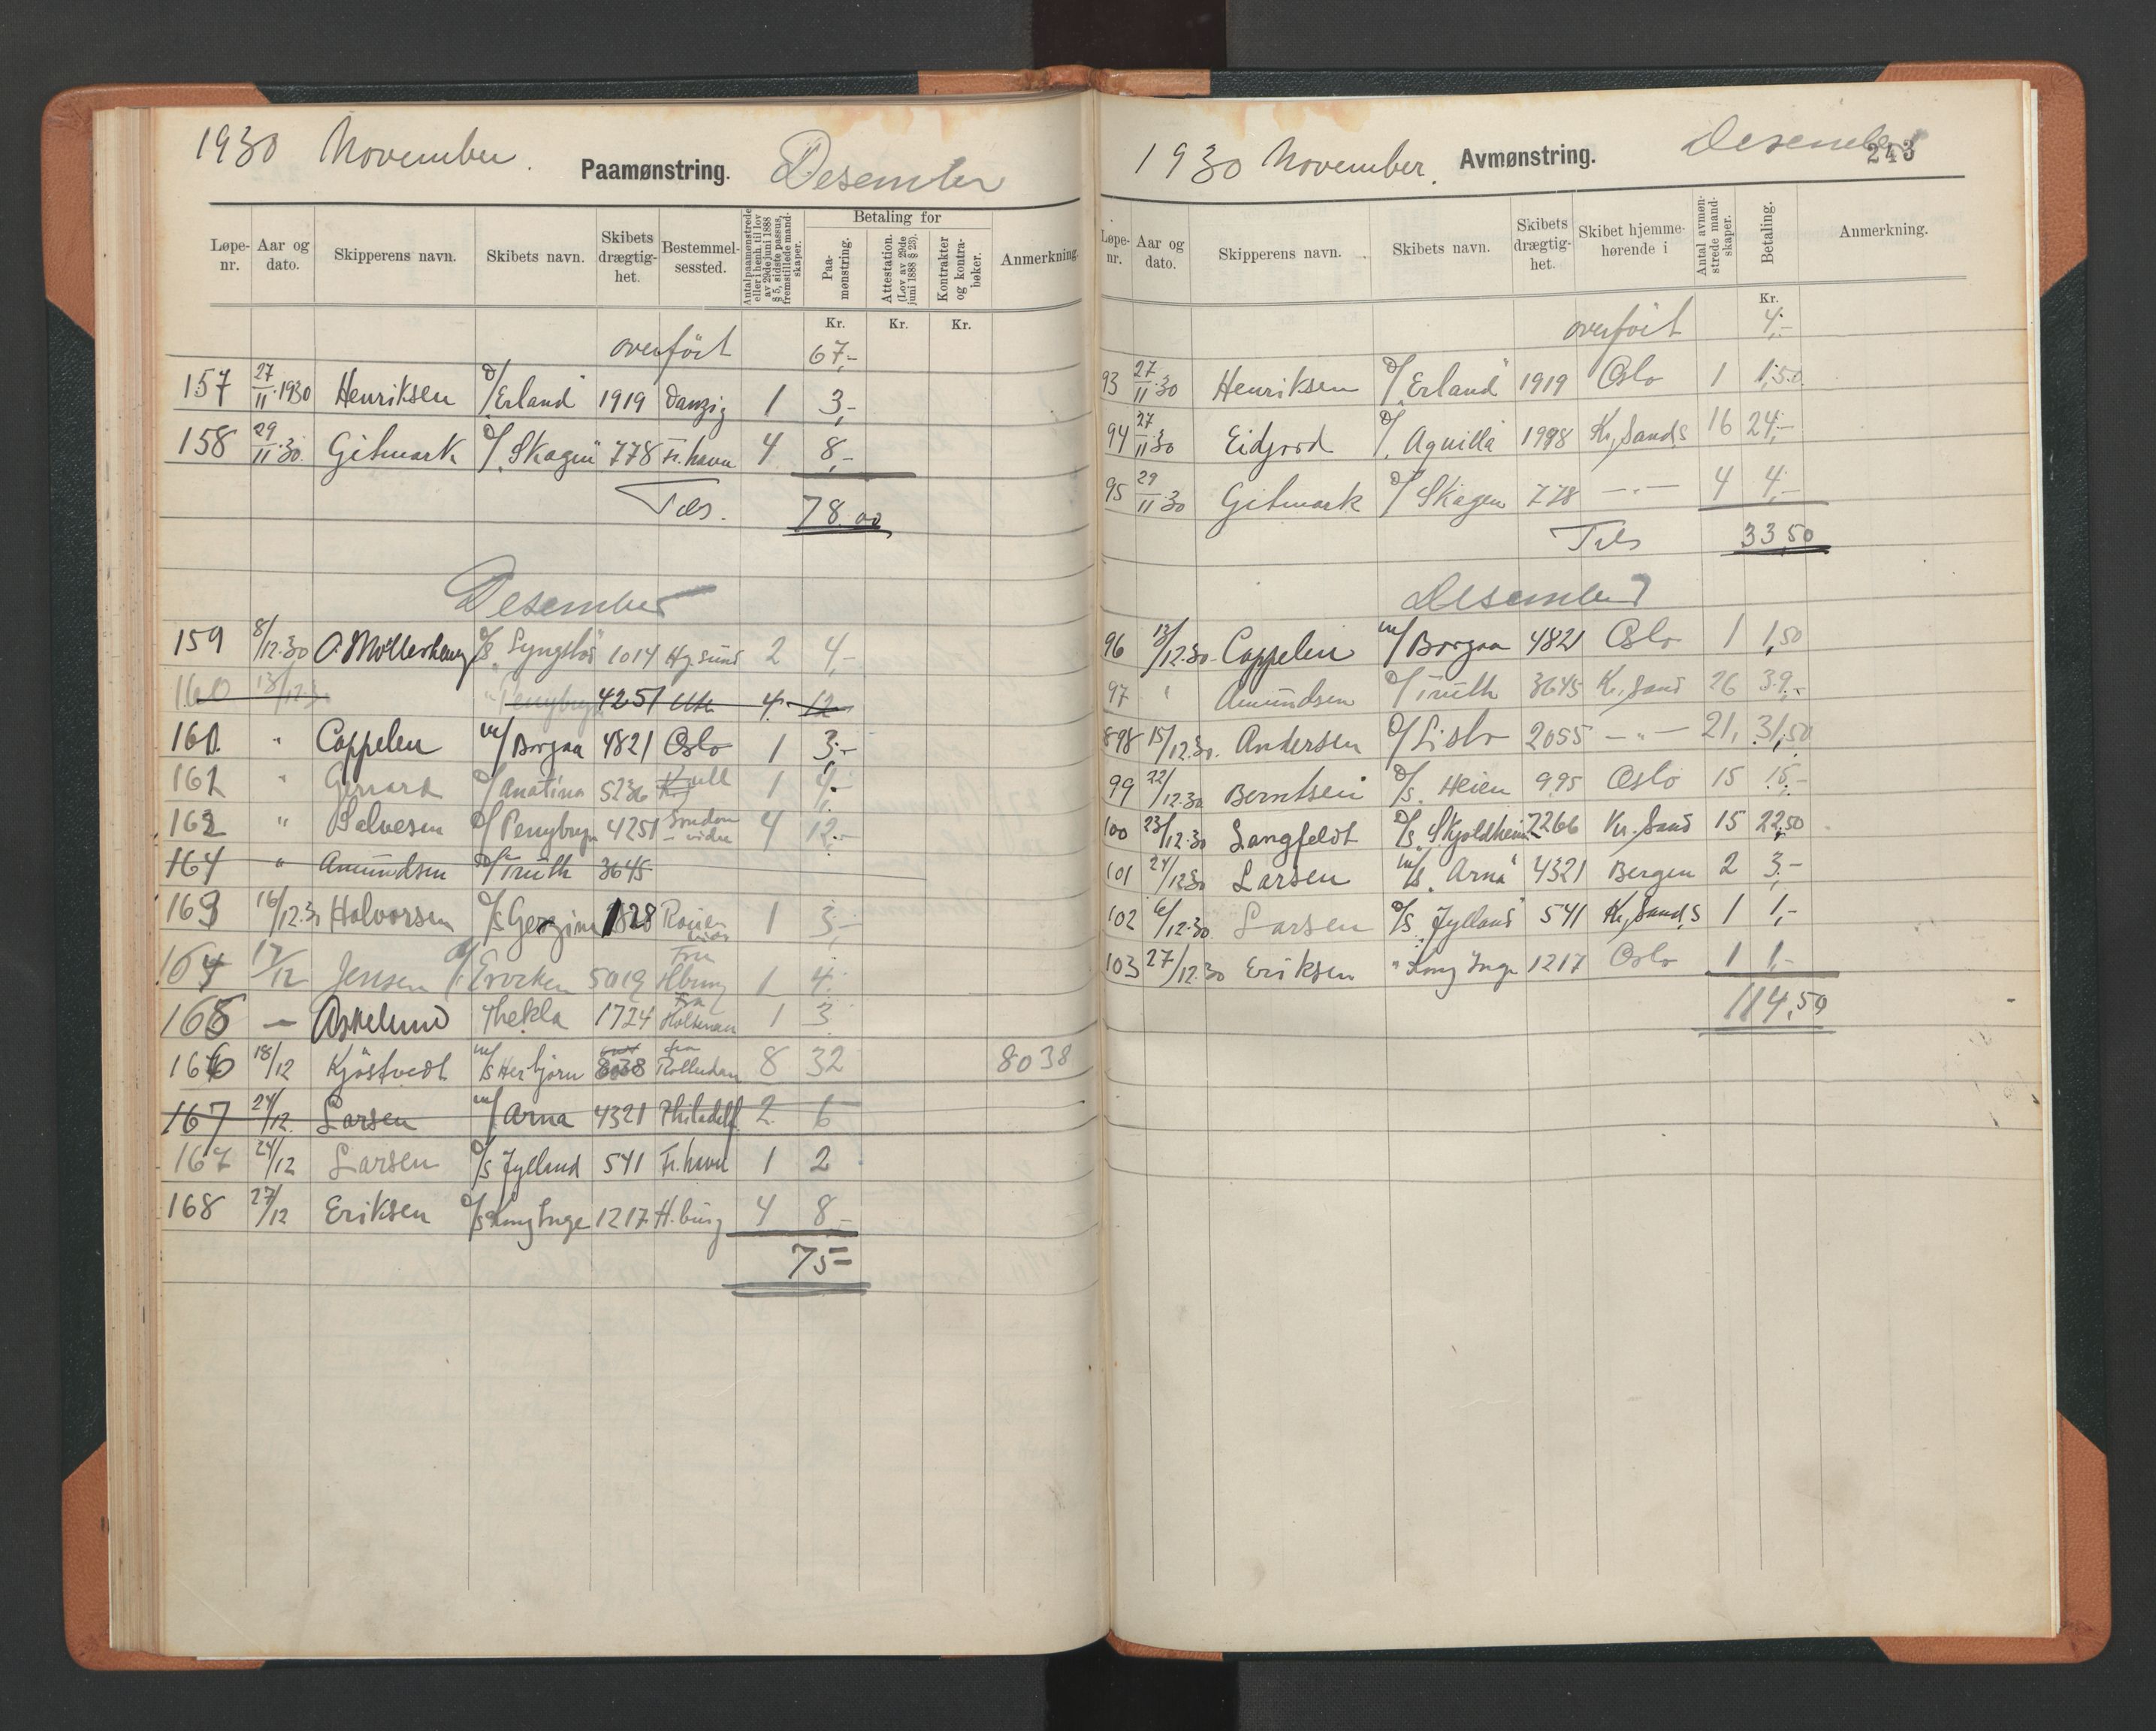 1930 November. Paamønstring. Desember
Løpe-nr. Aar og dato. Skipperens navn. Skibets navn. Skibets drægtig-het. Bestemmel-sessted. Antal paamønstrede eller i henh. til lov av 29de juni 1888 § 5, sidste passus, fremstillede mand-skaper. Betaling for Paa-mønstring. Attestation. (Lov av 29de juni 1888 § 23). Kontrakter og kontra-bøker. Anmerkning.
Kr. Kr. Kr.
overført 67,-
157 27/11.1930 Henriksen D/ "Erland" 1919 Danzig 1 3,-
158 29/11.30. Gitmark D/ "Skagen" 778 Fr.havn 4 8,-
Tils. 78.00
Desember
159 8/12.30 O. Möllerhaug D/S "Lyngstad" 1014 Hg.sund 2 4,-
160 13/12.30 " Penybryn 4251 4 12
160. " Coppelen m/ Borgaa 4821 Oslo 1 3,-
161 " Gerrard D/ Anatina 5236 Hull 1 4,-
162 " Salvesen D/ Penybryn 4251 London 4 12.-
164 " Amundsen D/ Truth 3645
163 16/12.30 Halvorsen D/S Gerzina 1828 Rouen 1 3,-
164 17/12 Jensen D/ 5019 Fra Hburg 1 4.
165 — Askelund Thekla 1724 Fra Holtenau 1 3
166 18/12 Kjöstvedt m/S Herbjörn 8038 fra Rotterdam 8 32 8038
167 24/12. Larsen m/ Arna 4321 Philadelf. 2 6
167 24/12 Larsen D/S Jylland 541 Fr.havn 1 2
168 27/12 Eriksen D/S Kong Inge 1217 H.burg 4 8-
75=
1930 November. Avmønstring. Desember 243
Løpe-nr. Aar og dato. Skipperens navn. Skibets navn. Skibets drægtig-het. Skibet hjemme-hørende i Antal avmøn-strede mand-skaper. Betaling. Anmerkning.
Kr.
overført 4,-
93 27/11.30 Henriksen D/ "Erland" 1919 Oslo 1 1,50
94 27/11.30 Eidjord D/ "Aquilla 1988 Kr.sand.S 16 24,-
95 29/11.30 Gitmark D/ Skagen 778 —"— 4 4,-
Tils 33,50
Desember
96 13/12.30. Coppelen m/ Borgaa 4821 Oslo 1 1,50
97 " Amundsen D/ Truth 3645 Kr.sand 26 39.-
898 15/12.30. Andersen D/ Sisto 2055 —"— 21, 31,50
99 22/12.30 Berntsen D/S. Heien 995 Oslo 15 15.-
100 23/12.30 Langfeldt D/S. Skjoldheim 2266 Kr.sand 15 22,50
101 24/12.30 Larsen m/S "Arna" 4321 Bergen 2 3,-
102 6/12.30 Larsen D/S "Jylland" 541 Kr.sand.S 1 1,-
103 27/12.30 Eriksen " Kong Inge 1217 Oslo 1 1,-
114,50